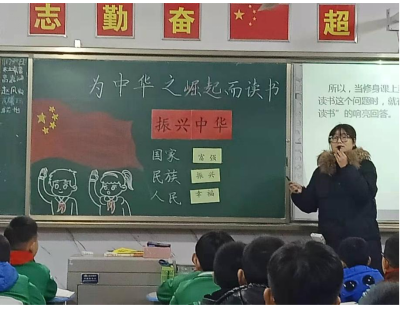 志 勤 奋 超
为中华之崛起而读书
振兴中华
国家 富强
民族 振兴
人民 幸福
所以，当修身课上
读书这个问题时，就
读书”的响亮回答。